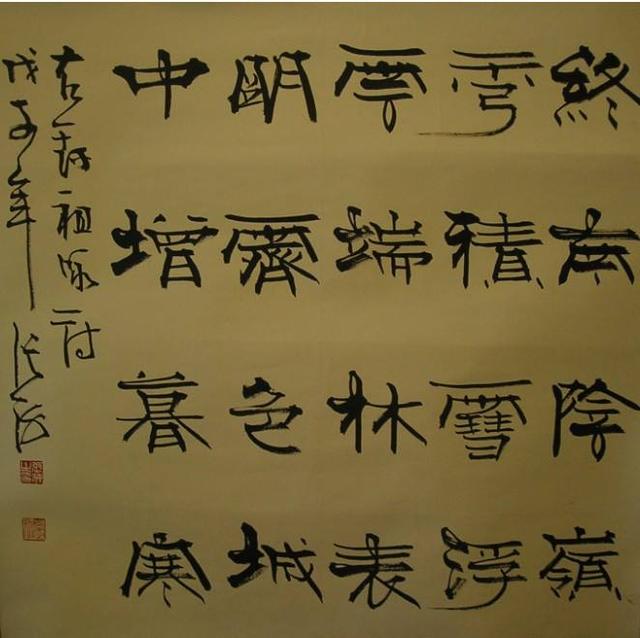 終南陰嶺
秀積雪浮
雲端林表
明霽色城
中增暮寒
右祖詠詩
戊子年